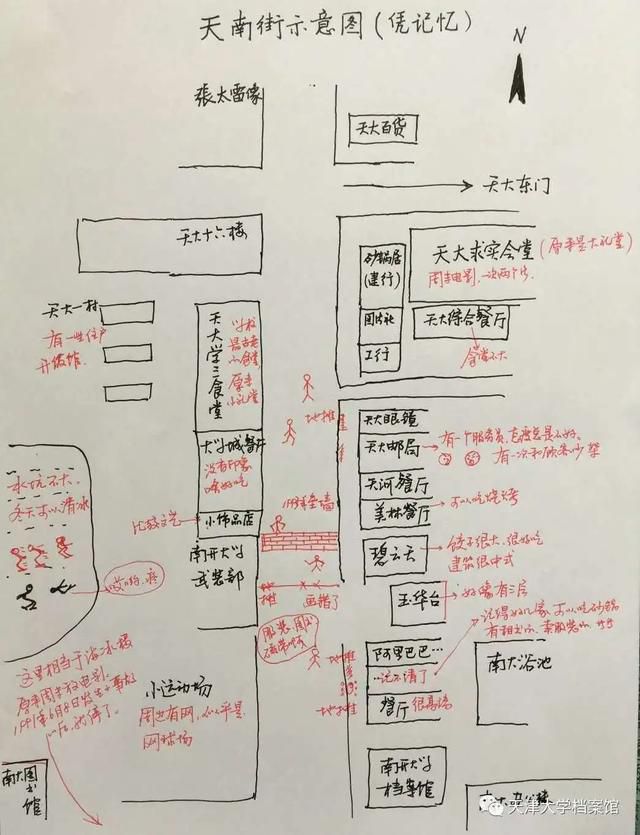 天南街示意图(凭记忆)
N
張太雷像
天大百货
天大东门
天大十六楼
砂锅居
(建行)
天大求实会堂
(原来是大礼堂)
周末电影,一次两个片.
图片社
天大综合餐厅
工行
拿货不大
天大一村
有一些住户
开饭馆.
天大学三食堂
学校
最古老
小食堂
原来
小礼堂
地摊
天大眼镜
天大邮局
有一个服务员,态度总是不好.
有一次和顾客吵架
天河餐厅
美林餐厅
可以吃烧烤
大学城餐厅
没有印象
啥好吃
比较文艺
小饰品店
碧云天
饺子很大、很好吃
建筑很中式
水坑不大,
冬天可以滑冰
哎哟,疼
南开大学
武装部
画错了
玉华台
好像有三层
阿里巴巴…
…记不清了
餐厅
很高请
南大浴池
地摊
这里相当于海冰极
原来周末放电影,
1991年6月8日发生小事故
以后,就停了。
小运动场
周边有网,似乎是
网球场
南大图书馆
南开大学
档案馆
天津大学档案馆